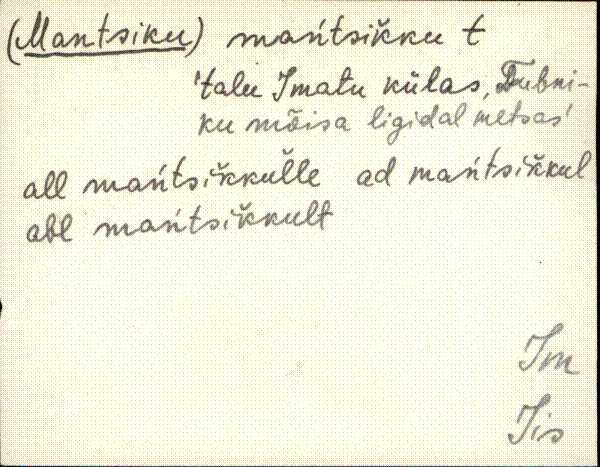 (Mantsiku) mańtsik̆ku t
'talu Imatu külas, Tubni-
ku mõisa ligidal metsas'
all mańtsik̆kul̆le ad mańtsik̆kul
abl mańtsik̆kult
Im
Iis